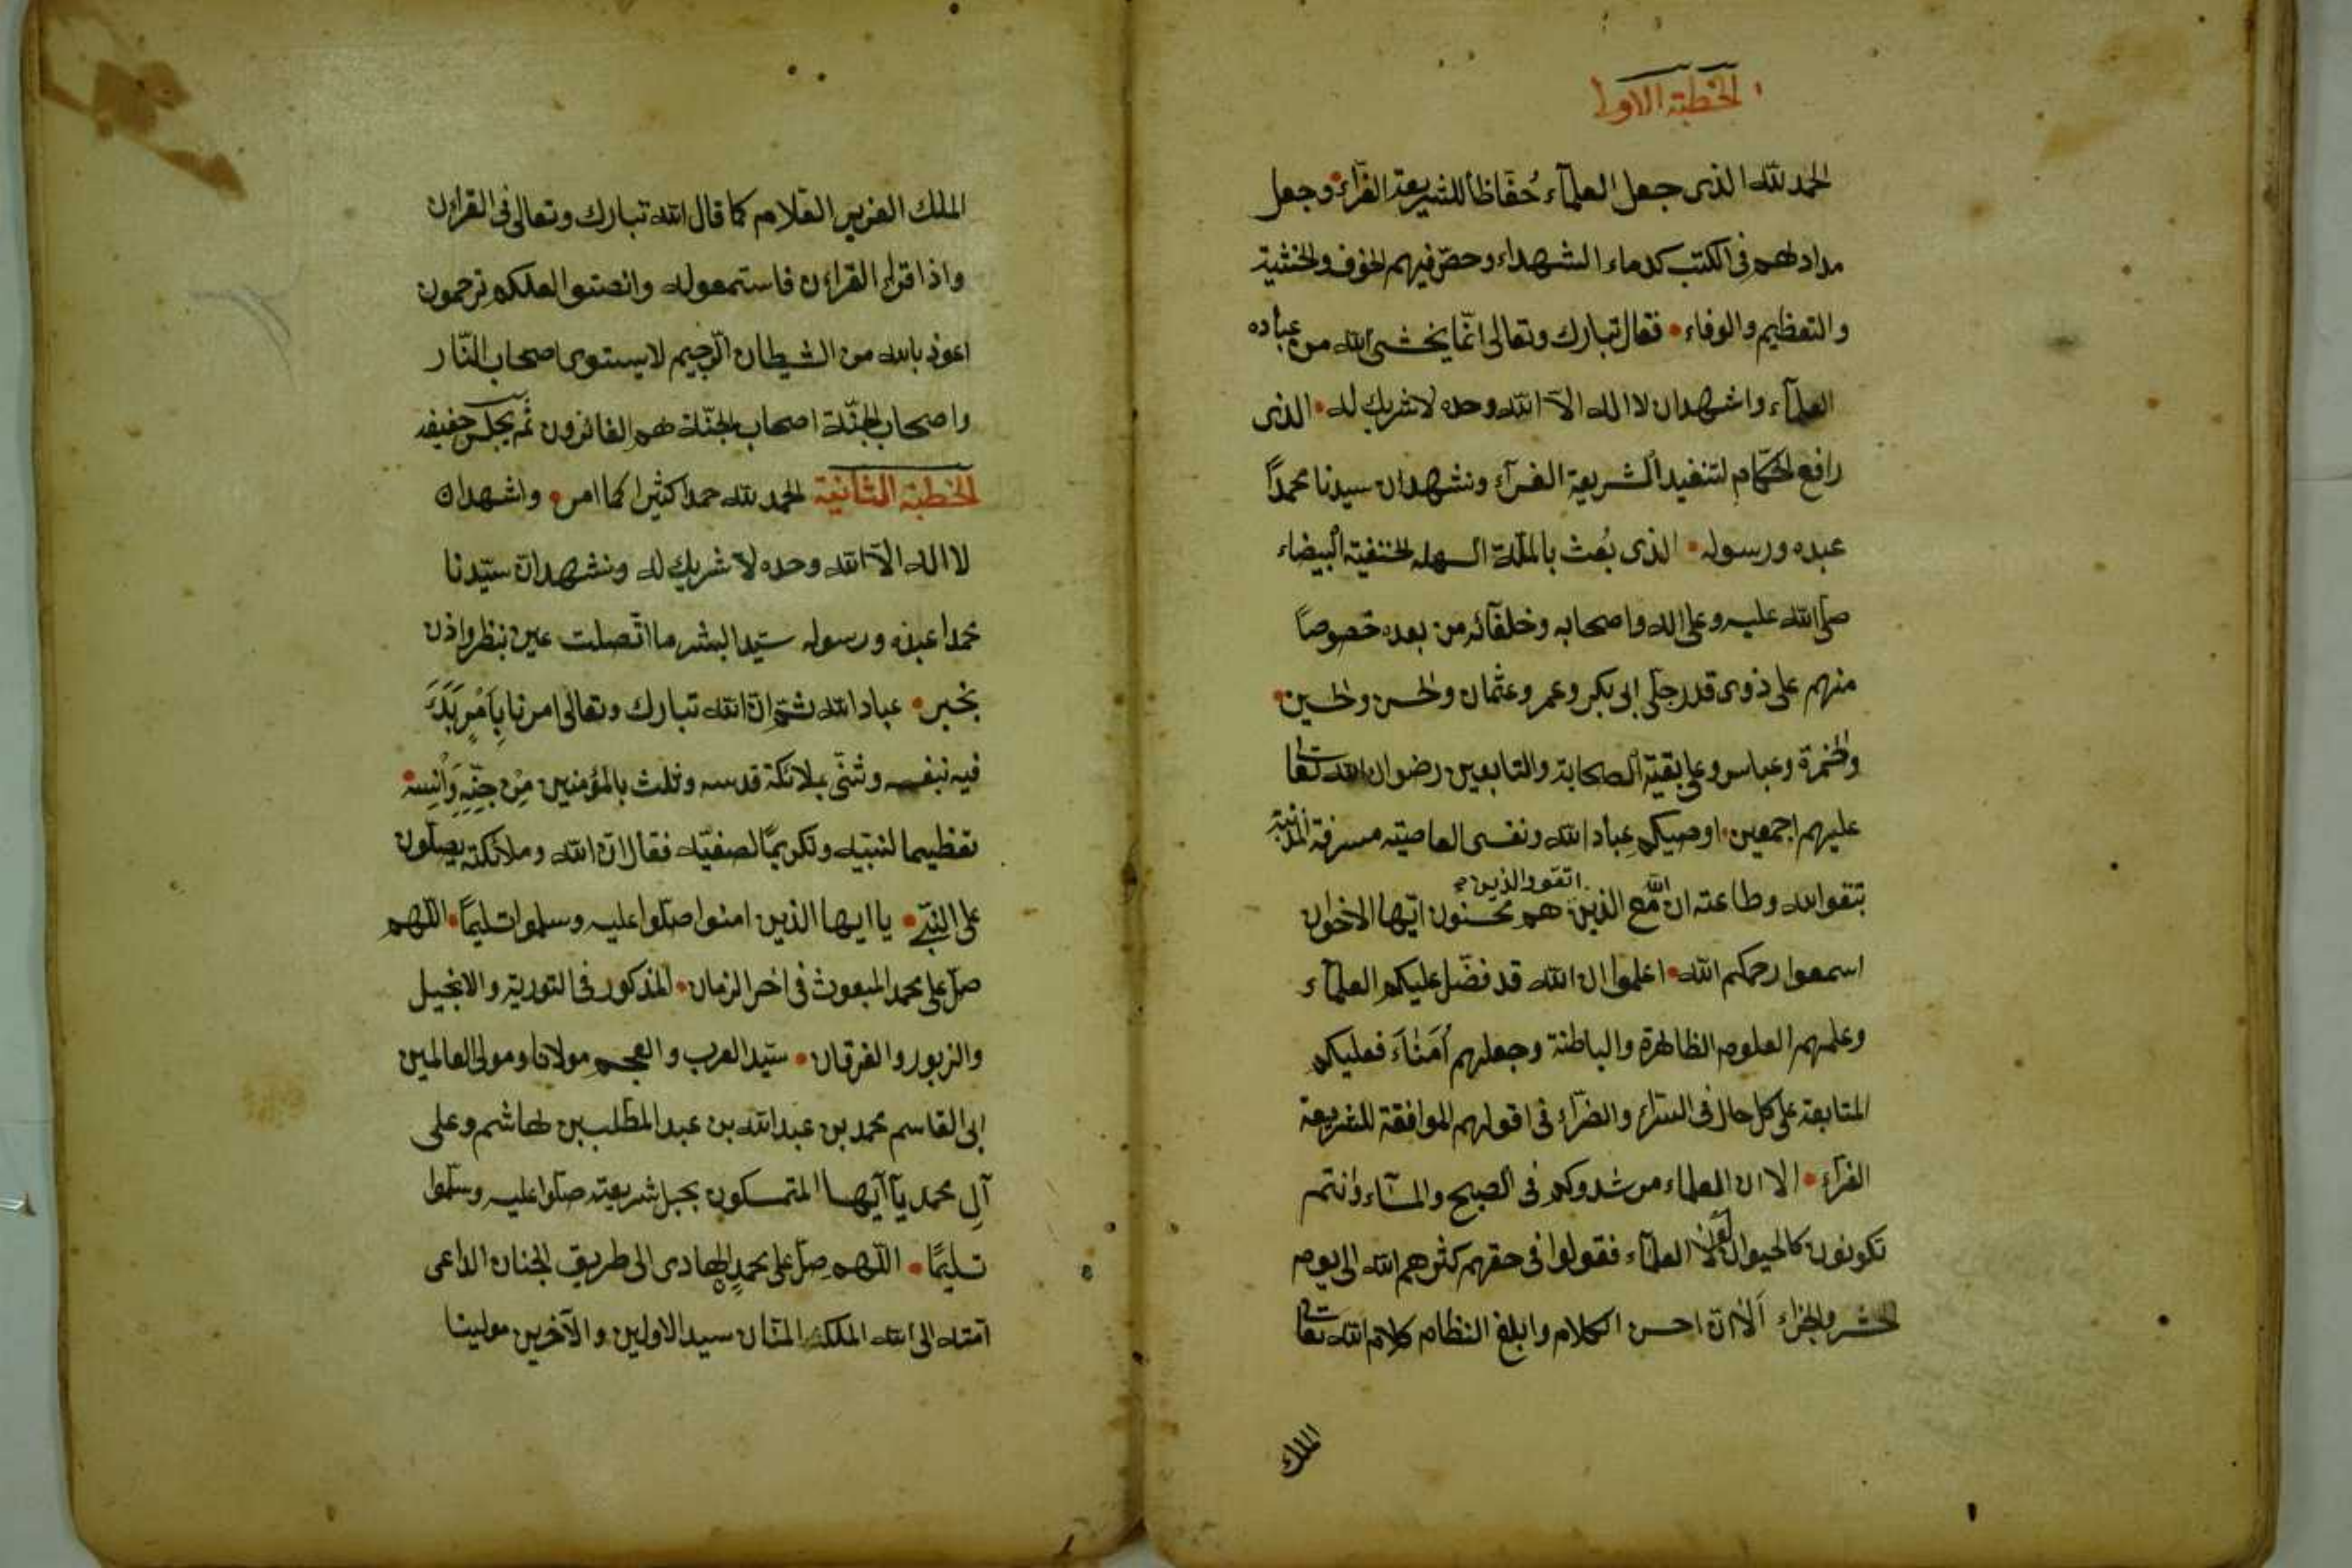 الخطبة الاولى
الحمد لله الذى جعل العلمآء حُفّاظاً للشريعة الغرّاء وجعل
مدادهم فى الكتب كدماء الشهداء وحصّ فيهم الخوف والخشية
والتعظيم والوفاء • فقال تبارك وتعالى انّما يخشى الله من عباده
العلمآء واشهد ان لا اله الاّ الله وحده لا شريك له • الذى
رافع الحكّام لتنفيد الشريعة الغرآء ونشهد ان سيدنا محمداً
عبده ورسوله • الذى بُعث بالملّة السهلة الحنفية البيضاء
صلّى الله عليه وعلى اله واصحابه وخلفآئه من بعده خصوصاً
منهم على ذوى قدر جلّى ابى بكر وعمر وعثمان والحسن والحسين •
والحمزة وعباس وعلى بقية الصحابة والتابعين رضوان الله تعالى
عليهم اجمعين • اوصيكم عباد الله ونفسى العاصيته مسرفة المذنبة
بتقوالله وطاعته ان الله مع الذين اتقوا والذين هم محسنون ايّها الاخوان
اسمعوا رحمكم الله • اعلموا ان الله قد فضّل عليكم العلمآء
وعلمهم العلوم الظاهرة والباطنة وجعلهم اُمَنٰآءَ فعليكم
المتابعة على كل حال فى السّراء والضرّاء فى اقولهم الموافقة للشريعة
الغرّاء • الا ان العلماء مرشدوكم فى الصبح والمسآء وانتم
تكونون كالحيوان لولا العلمآء فقولوا فى حقهم كثرهم الله الى يوم
الحشر والجزاء ألا ان احسن الكلام وابلغ النظام كلام الله تعالى
الملك
الملك العزيز العلام كما قال الله تبارك وتعالى فى القرآن
واذا قرئ القرآن فاستمعوله وانصتوا لعلكم ترحمون
اعوذ بالله من الشيطان الرّجيم لا يستوى اصحاب النّار
واصحاب الجنّة اصحاب الجنّة هم الفائزون ثم يجلس خفيفه
الخطبة الثانية الحمد لله حمدا كثيرا كما امر • واشهد ان
لا اله الاّ الله وحده لا شريك له ونشهد انّ سيّدنا
محمدا عبده ورسوله سيّد البشر ما اتّصلت عين بنظر واذن
بخبر • عباد الله انّ الله تبارك وتعالى امرنا بِاَمْرٍ بَدَءَ
فيه بنفسه وثنّى بملائكة قدسه وثلث بالمؤمنين مِن جِنِّهِ وَاِنْسِه •
تعظيما لنبيّه وتكريمًا لصفيّه فقال انّ الله وملائكته يصلّون
على النّبىّ • يا ايها الذين امنوا صلّوا عليه وسلموا تسليمًا • اللّهم
صلّ على محمد المبعوث فى اخر الزمان • المذكور فى التورية والانجيل
والزبور والفرقان • سيّد العرب والعجم مولانا ومولى العالمين
ابى القاسم محمد بن عبد الله بن عبد المطّلب بن هاشم وعلى
آلِ محمد يآ ايّها المتمسكون بحبل شريعته صلّوا عليه وسلّموا
تسليمًا • اللّهم صلّ على محمدٍ الهادى الى طريق الجنان الداعى
امّته الى الله الملك المنّان سيد الاولين والآخرين مولينا